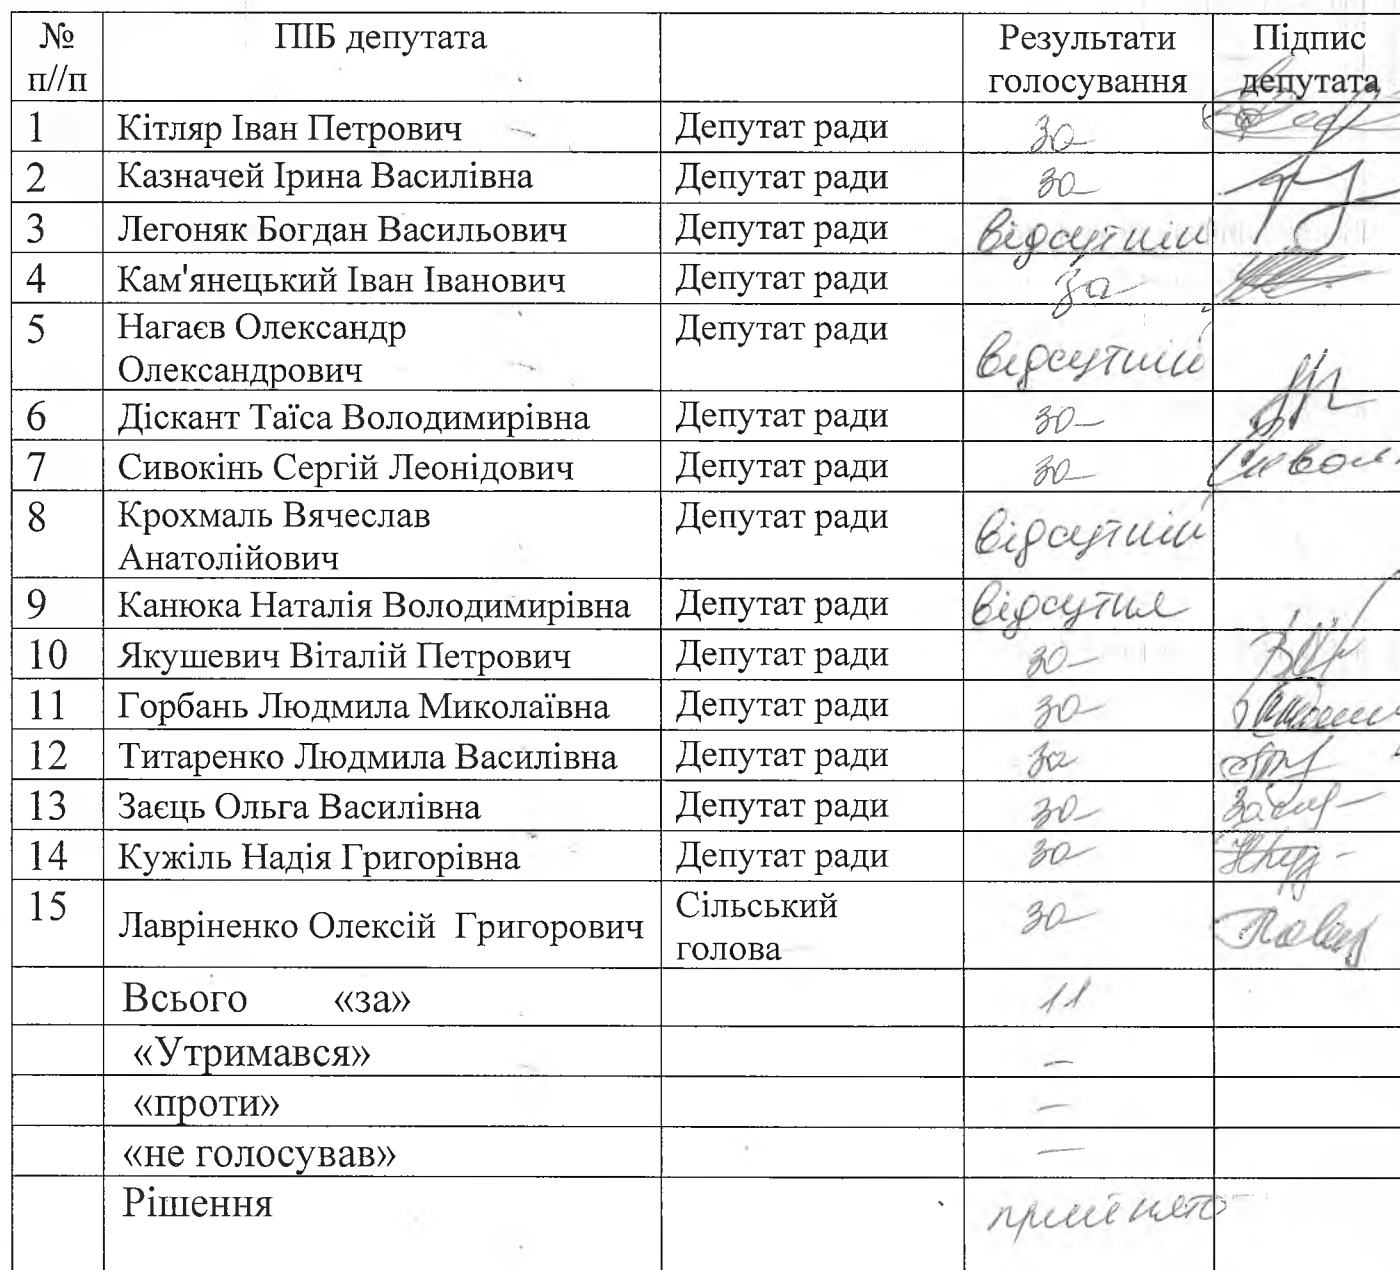 № ПІБ депутата Результати Підпис
п//п голосування депутата
1 Кітляр Іван Петрович Депутат ради за
2 Казначей Ірина Василівна Депутат ради за
3 Легоняк Богдан Васильович Депутат ради відсутній
4 Кам'янецький Іван Іванович Депутат ради за
5 Нагаєв Олександр Депутат ради відсутній
Олександрович
6 Діскант Таїса Володимирівна Депутат ради за
7 Сивокінь Сергій Леонідович Депутат ради за
8 Крохмаль Вячеслав Депутат ради відсутній
Анатолійович
9 Канюка Наталія Володимирівна Депутат ради відсутня
10 Якушевич Віталій Петрович Депутат ради за
11 Горбань Людмила Миколаївна Депутат ради за
12 Титаренко Людмила Василівна Депутат ради за
13 Заєць Ольга Василівна Депутат ради за
14 Кужіль Надія Григорівна Депутат ради за
15 Лавріненко Олексій Григорович Сільський за
голова
Всього «за» 11
«Утримався» –
«проти» –
«не голосував» –
Рішення прийнято